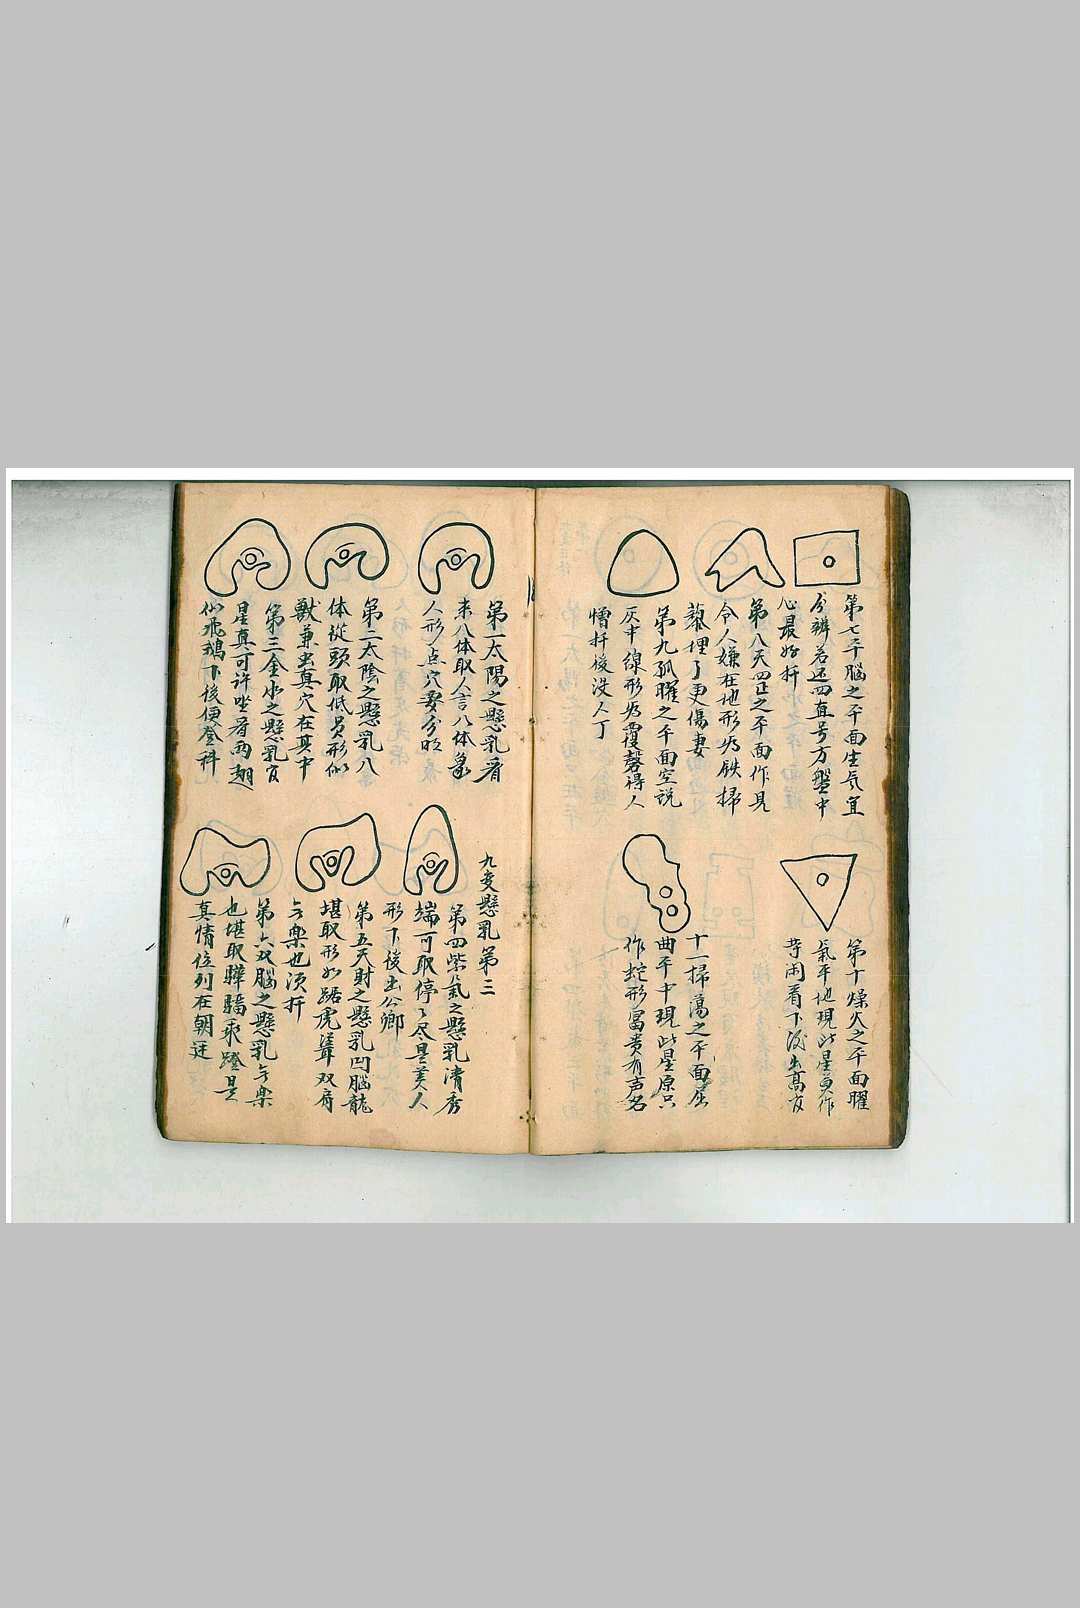 第七平腦之平面生気宜
分辨若还四直号方盤中
心最好扦
第八天罡之平面作見
令人嫌在地形为鉄掃
藜埋了更傷妻
第九孤曜之平面空説
灰中線形为覆磬得人
憎扦後没人丁
第十燥火之平面曜
氣平地現此星員作
等闲看下後出高官
十一掃蕩之平面屈
曲平中現此星原只
作蛇形富貴有声名
九变懸乳第三
第一太陽之懸乳看
来八体取人言八体象
人形点穴要分明
第二太陰之懸乳八
体從頭取低員形似
獸兼虫真穴在其中
第三金水之懸乳官
星真可许坐看兩翅
似飛鵝下後便登科
第四紫気之懸乳清秀
端可取停々尽是美人
形下後出公卿
第五天財之懸乳凹腦龍
堪取形如踞虎聳双肩
与樂也須扦
第六双腦之懸乳与樂
也堪取驊驑乘蹬是
真情位列在朝廷